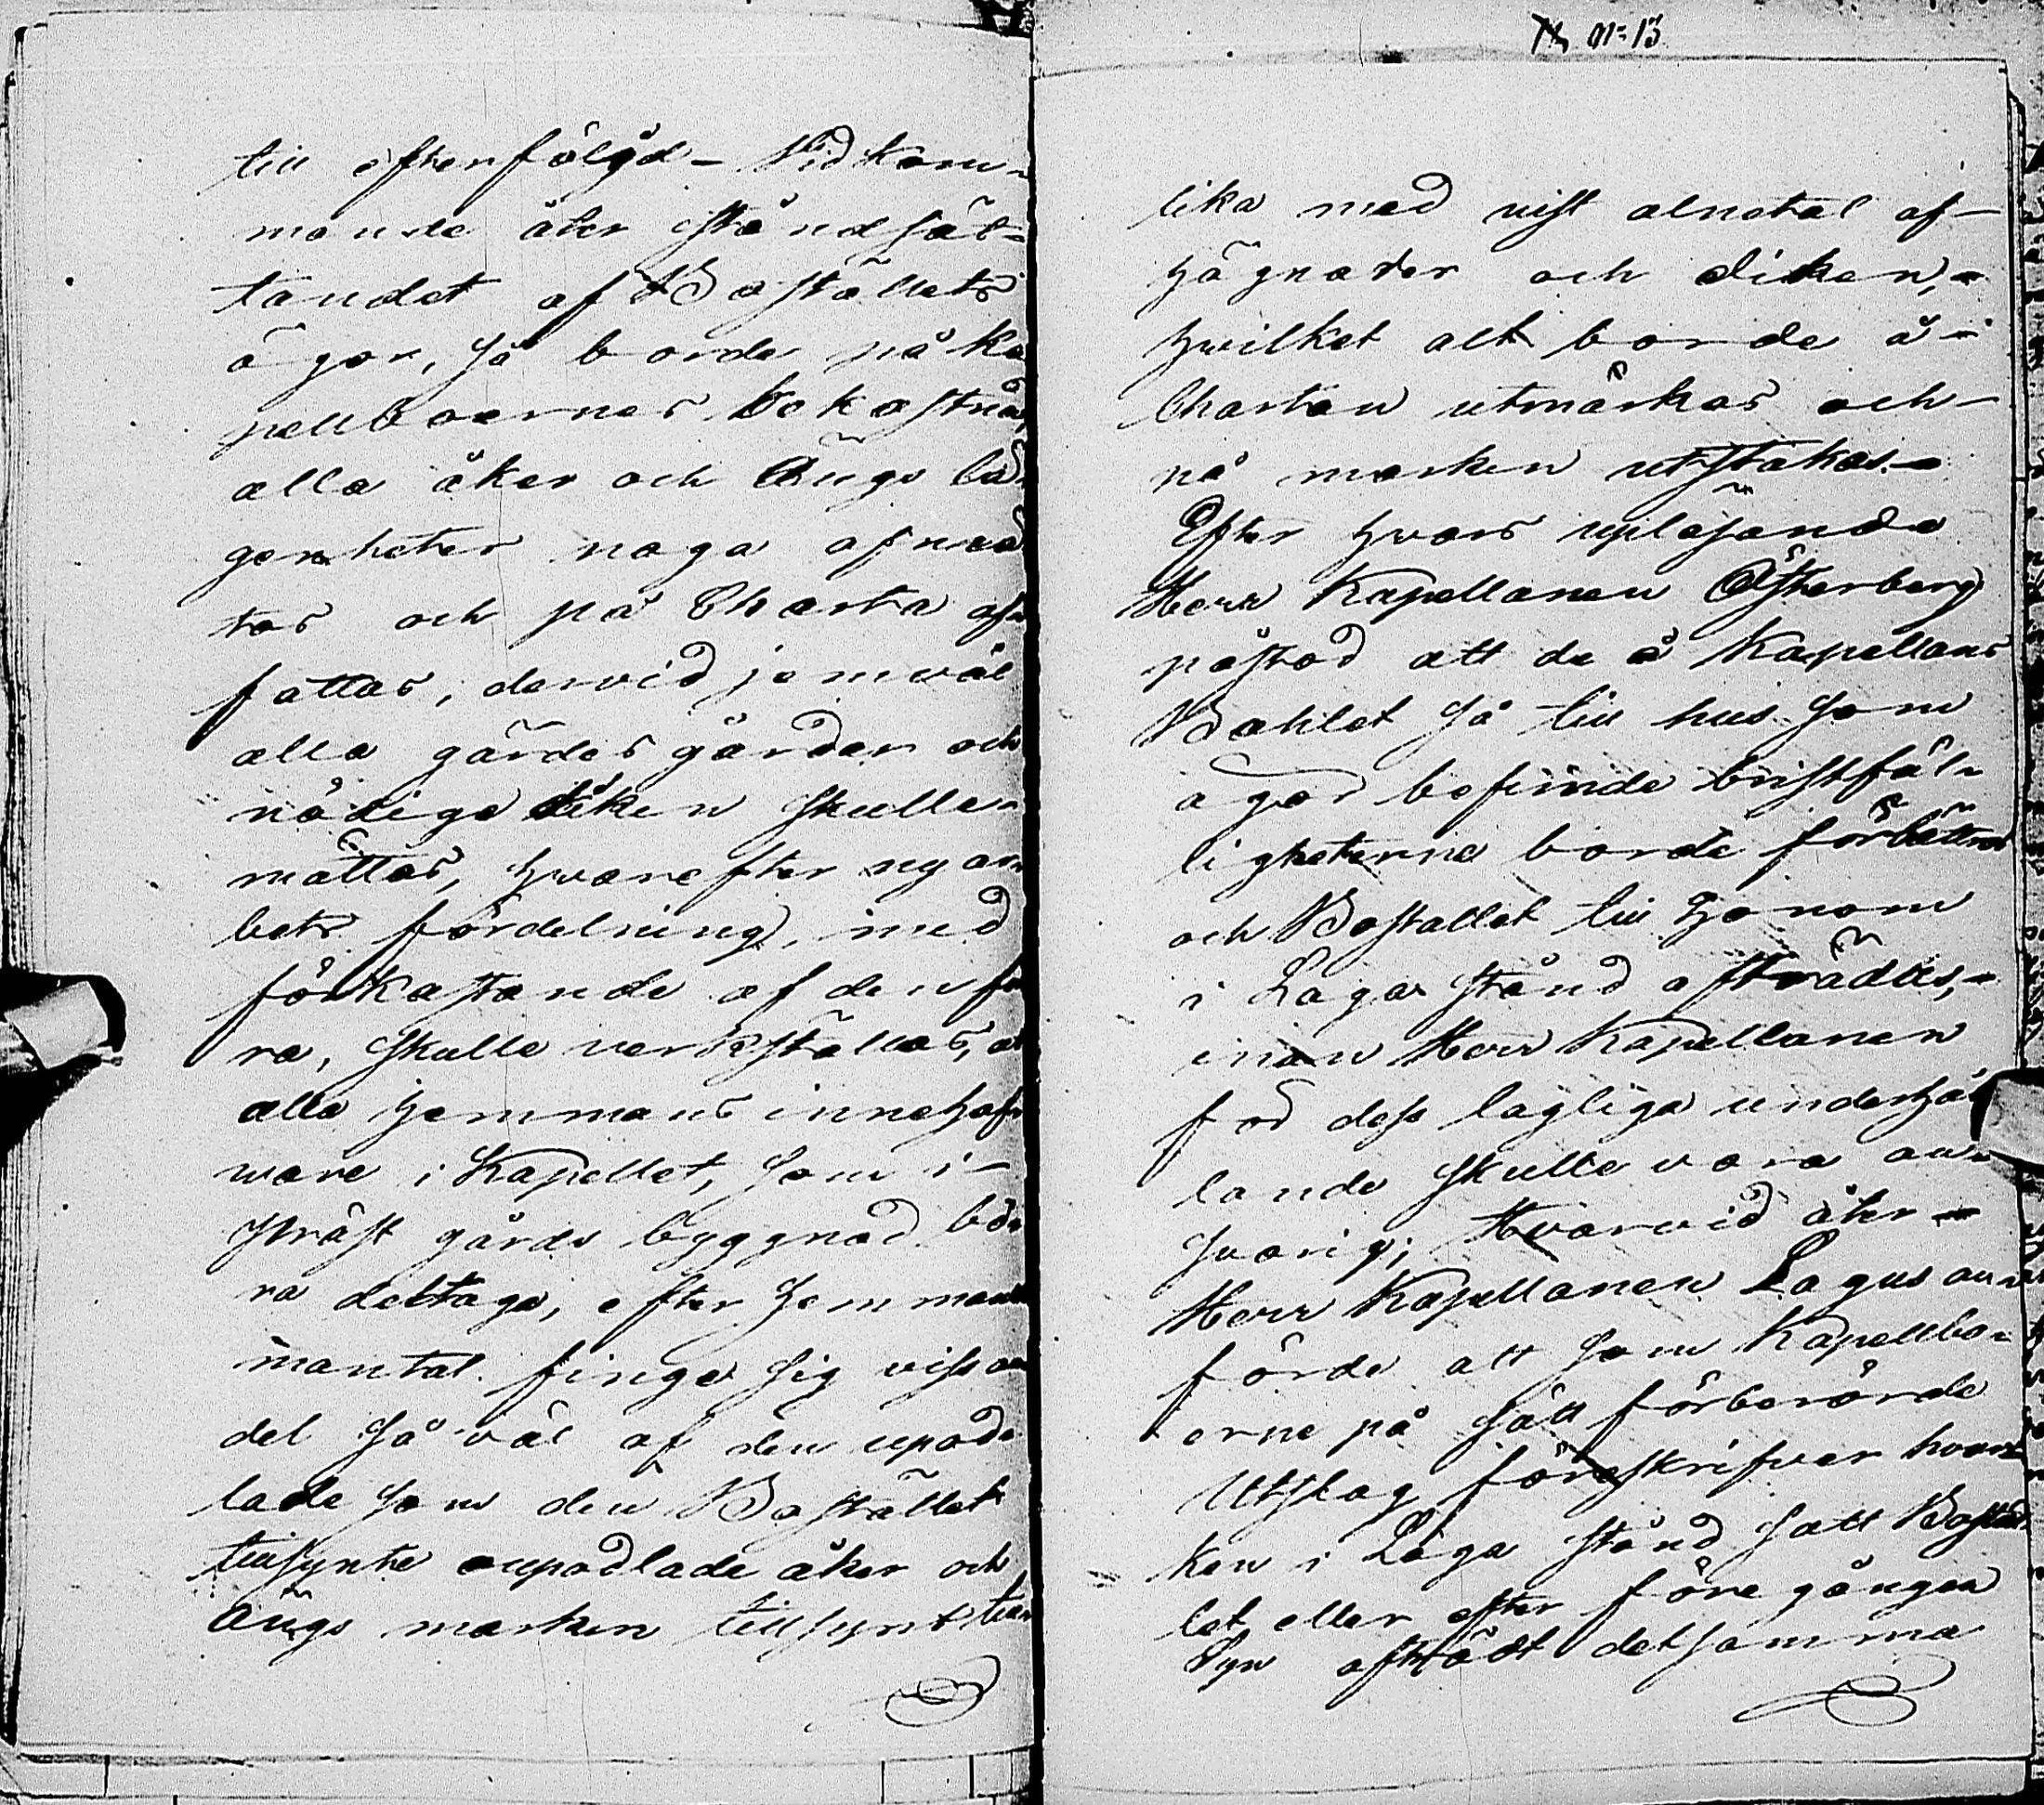 till efterfölgd – Vidkom-
mande åter iståndsät-
tandet af Boställets
ägor, så borde på ka
pellboernes bekostnad
alla åker och Ängs lä-
genheter noga afmä
tas och på Charta af-
fattas, dervid jemväl
alla gärdes gårdar och
nödiga diken skulle
mättas, hvarefter ny ar-
bets fördelning, med
förkastande af den för
ra, skulle verkställas, at
alla hemmans innehaf-
ware i Kapellet, som i
Präst gårds byggnad bö-
ra deltaga, efter hemmans
mantal finge sig viss an
del så väl af den upod-
lade som den Bostället
tillsynte oupodlade åker och
ängs marken tillsynt till
lika med vist alnetal af
hägnader och diken,
hvilket alt borde å
Chartan utmärkas och
på marken utstakas.
Efter hvars upläsande
Herr Kapellanen Österberg
påstod att de å Kapellans
Bohlet så till hus som
ägor befinde bristfäl-
ligheterne borde förbättras
och Bostallet till honom
i Laga stånd afträdas,
inan Herr Kapellanen
för dess lagliga underhål
lande skulle vara an-
svarig; Hvarvid åter
Herr Kapellanen Lagus an-
förde att som Kapellbo-
erne på sätt förberörde
Utslag föreskrifver hvar-
ken i Laga stånd satt Bostäl
let eller efter föregången
Syn afträdt detsamma